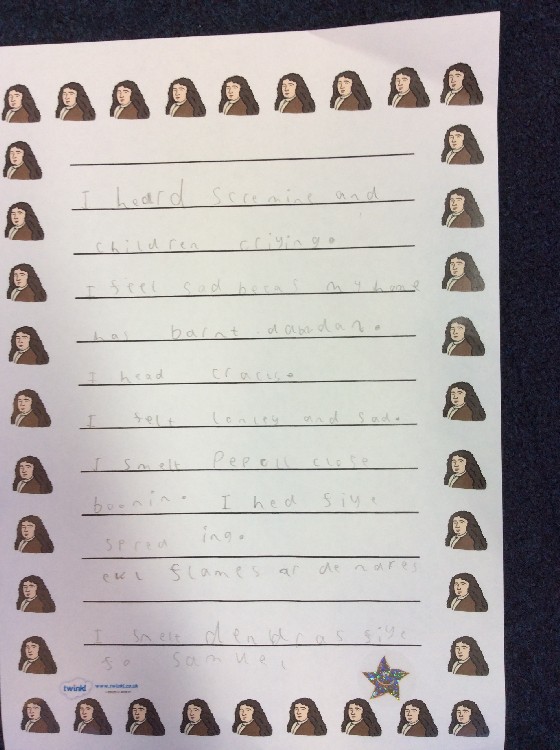 I heard Scremine and
children criying.
I feel sad becas my home
has barnt dawdan.
I head cracus.
I felt lonley and sad.
I smelt Pepoll close
boonin. I hed fiye
spred ing.
flames ar de nares
I smelt denbras fiye
so samuel
twinkl www.twinkl.co.uk